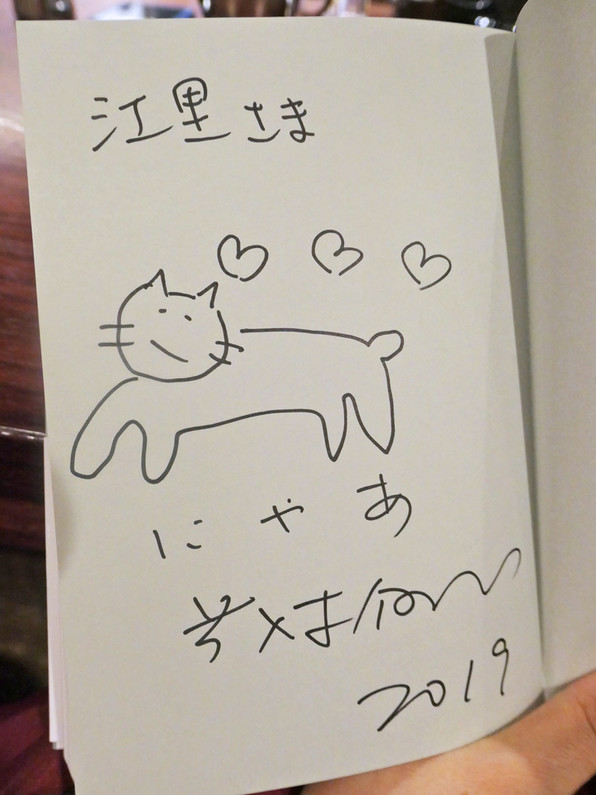 江里さま
にゃあ
2019